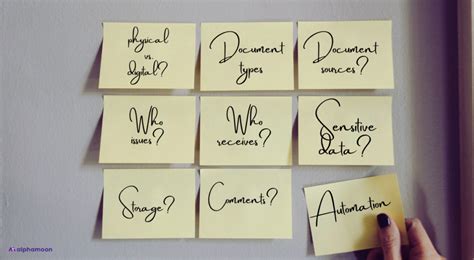 physical
vs.
digital?
Document
types
Document
sources?
Who
issues?
Who
receives?
Sensitive
data?
Storage?
Comments?
Automation
alphamoon